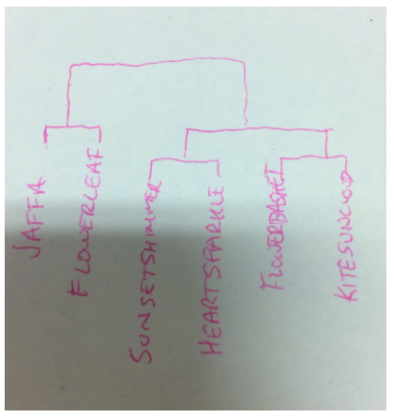 JAFFA
FLOWERLEAF
SUNSETSHIMMER
HEARTSPARKLE
FLOWERBASKET
KITESUNCLOUD